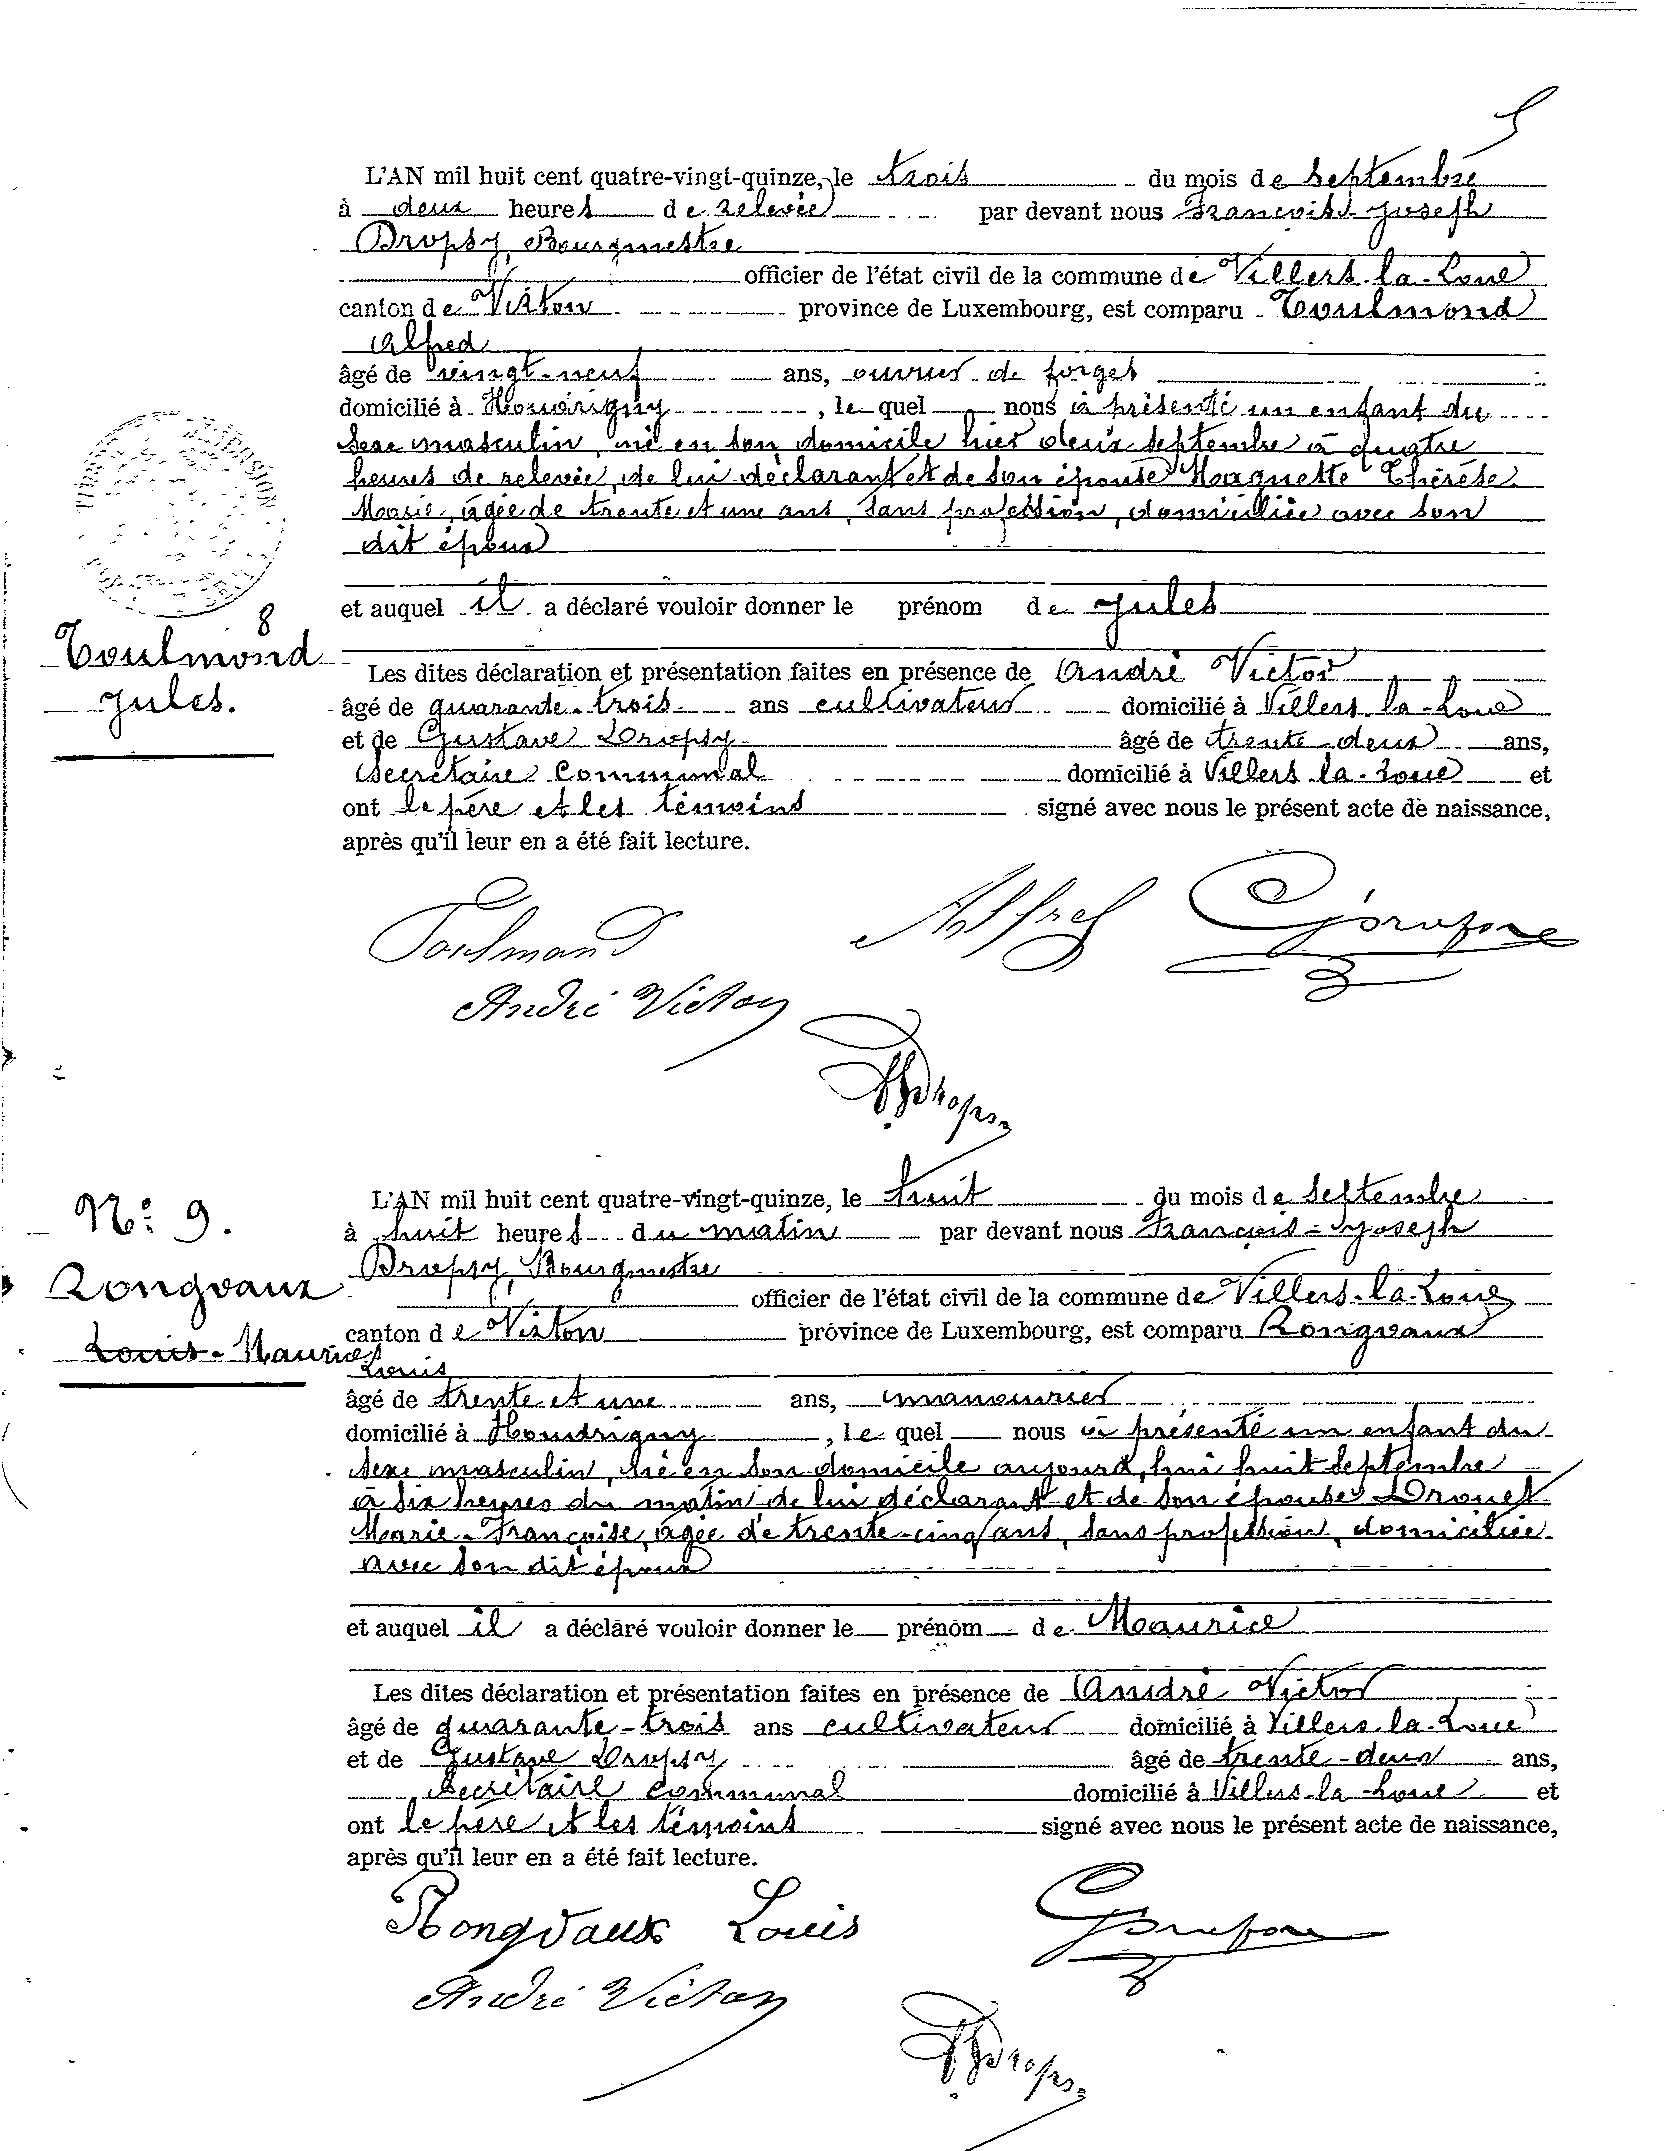 5
L'AN mil huit cent quatre-vingt-quinze, le trois du mois de Septembre
à deux heures de relevée par devant nous François-Joseph
Dropsy, Bourgmestre
officier de l'état civil de la commune de Villers-la-Loue
canton de Virton province de Luxembourg, est comparu Toulmond
Alfred
âgé de vingt-neuf ans, ouvrier de forges
domicilié à Houdrigny, lequel nous a présenté un enfant du
sexe masculin, né en son domicile hier deux septembre à quatre
heures de relevée, de lui déclarant et de son épouse Thérèse
Marie, âgée de trente et une ans, sans profession, domiciliée avec son
dit époux
et auquel il a déclaré vouloir donner le prénom de Jules
8
Toulmond
Jules.
Les dites déclaration et présentation faites en présence de André Victor
âgé de quarante-trois ans cultivateur domicilié à Villers-la-Loue
et de Gustave Dropsy âgé de trente-deux ans,
Secrétaire Communal domicilié à Villers-la-Loue et
ont le père et les témoins signé avec nous le présent acte de naissance,
après qu'il leur en a été fait lecture.
Toulmond Alfred
André Victor
Dropsy
N° 9.
Rongvaux
Louis-Maurice
L'AN mil huit cent quatre-vingt-quinze, le huit du mois de Septembre
à huit heures du matin par devant nous François-Joseph
Dropsy, Bourgmestre
officier de l'état civil de la commune de Villers-la-Loue
canton de Virton province de Luxembourg, est comparu Rongvaux
Louis
âgé de trente et une ans, manouvrier
domicilié à Houdrigny, lequel nous a présenté un enfant du
sexe masculin, né en son domicile aujourd'hui huit Septembre
à six heures du matin de lui déclarant et de son épouse Drouet
Marie-Françoise, âgée de trente-cinq ans, sans profession, domiciliée
avec son dit époux
et auquel il a déclaré vouloir donner le prénom de Maurice
Les dites déclaration et présentation faites en présence de André Victor
âgé de quarante-trois ans cultivateur domicilié à Villers-la-Loue
et de Gustave Dropsy âgé de trente-deux ans,
Secrétaire communal domicilié à Villers-la-Loue et
ont le père et les témoins signé avec nous le présent acte de naissance,
après qu'il leur en a été fait lecture.
Rongvaux Louis
André Victor
Dropsy